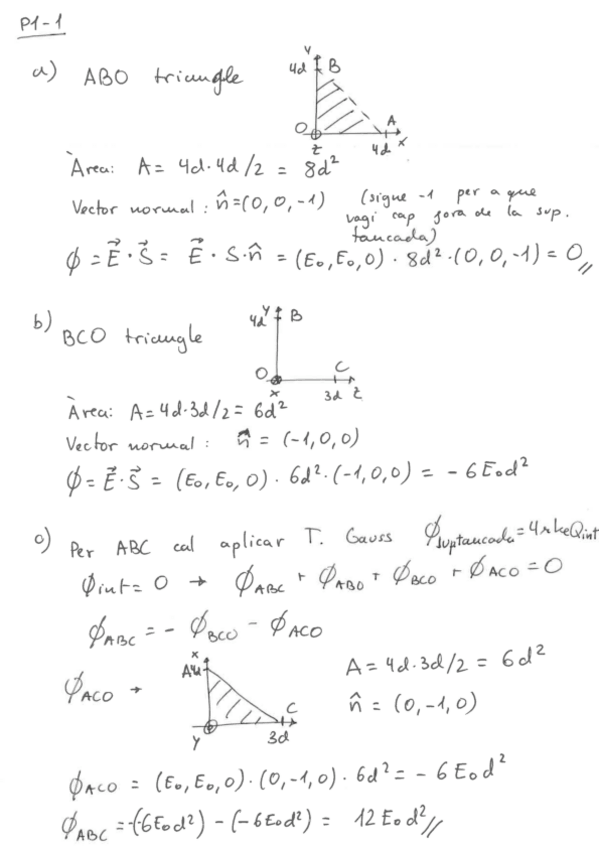 P1-1
a) ABO triangle
y
4d B
O A
z 4d x
Àrea: A = 4d·4d/2 = 8d²
Vector normal: n̂=(0,0,-1) (signe -1 per a que
vagi cap fora de la sup.
tancada)
ϕ = E⃗·S⃗ = E⃗·S·n̂ = (E₀,E₀,0)·8d²·(0,0,-1) = 0//
b) BCO triangle
y
4d B
O C
x 3d z
Àrea: A=4d·3d/2= 6d²
Vector normal: n̂ = (-1,0,0)
ϕ = E⃗·S⃗ = (E₀,E₀,0)·6d²·(-1,0,0) = -6E₀d²
c) Per ABC cal aplicar T. Gauss ϕsup tancada=4πkeQint
ϕint = 0 → ϕABC + ϕABO + ϕBCO + ϕACO = 0
ϕABC = - ϕBCO - ϕACO
x
A 4d
ϕACO →
C
y 3d
A = 4d·3d/2 = 6d²
n̂ = (0,-1,0)
ϕACO = (E₀,E₀,0)·(0,-1,0)·6d² = -6E₀d²
ϕABC = -(-6E₀d²) - (-6E₀d²) = 12E₀d²//